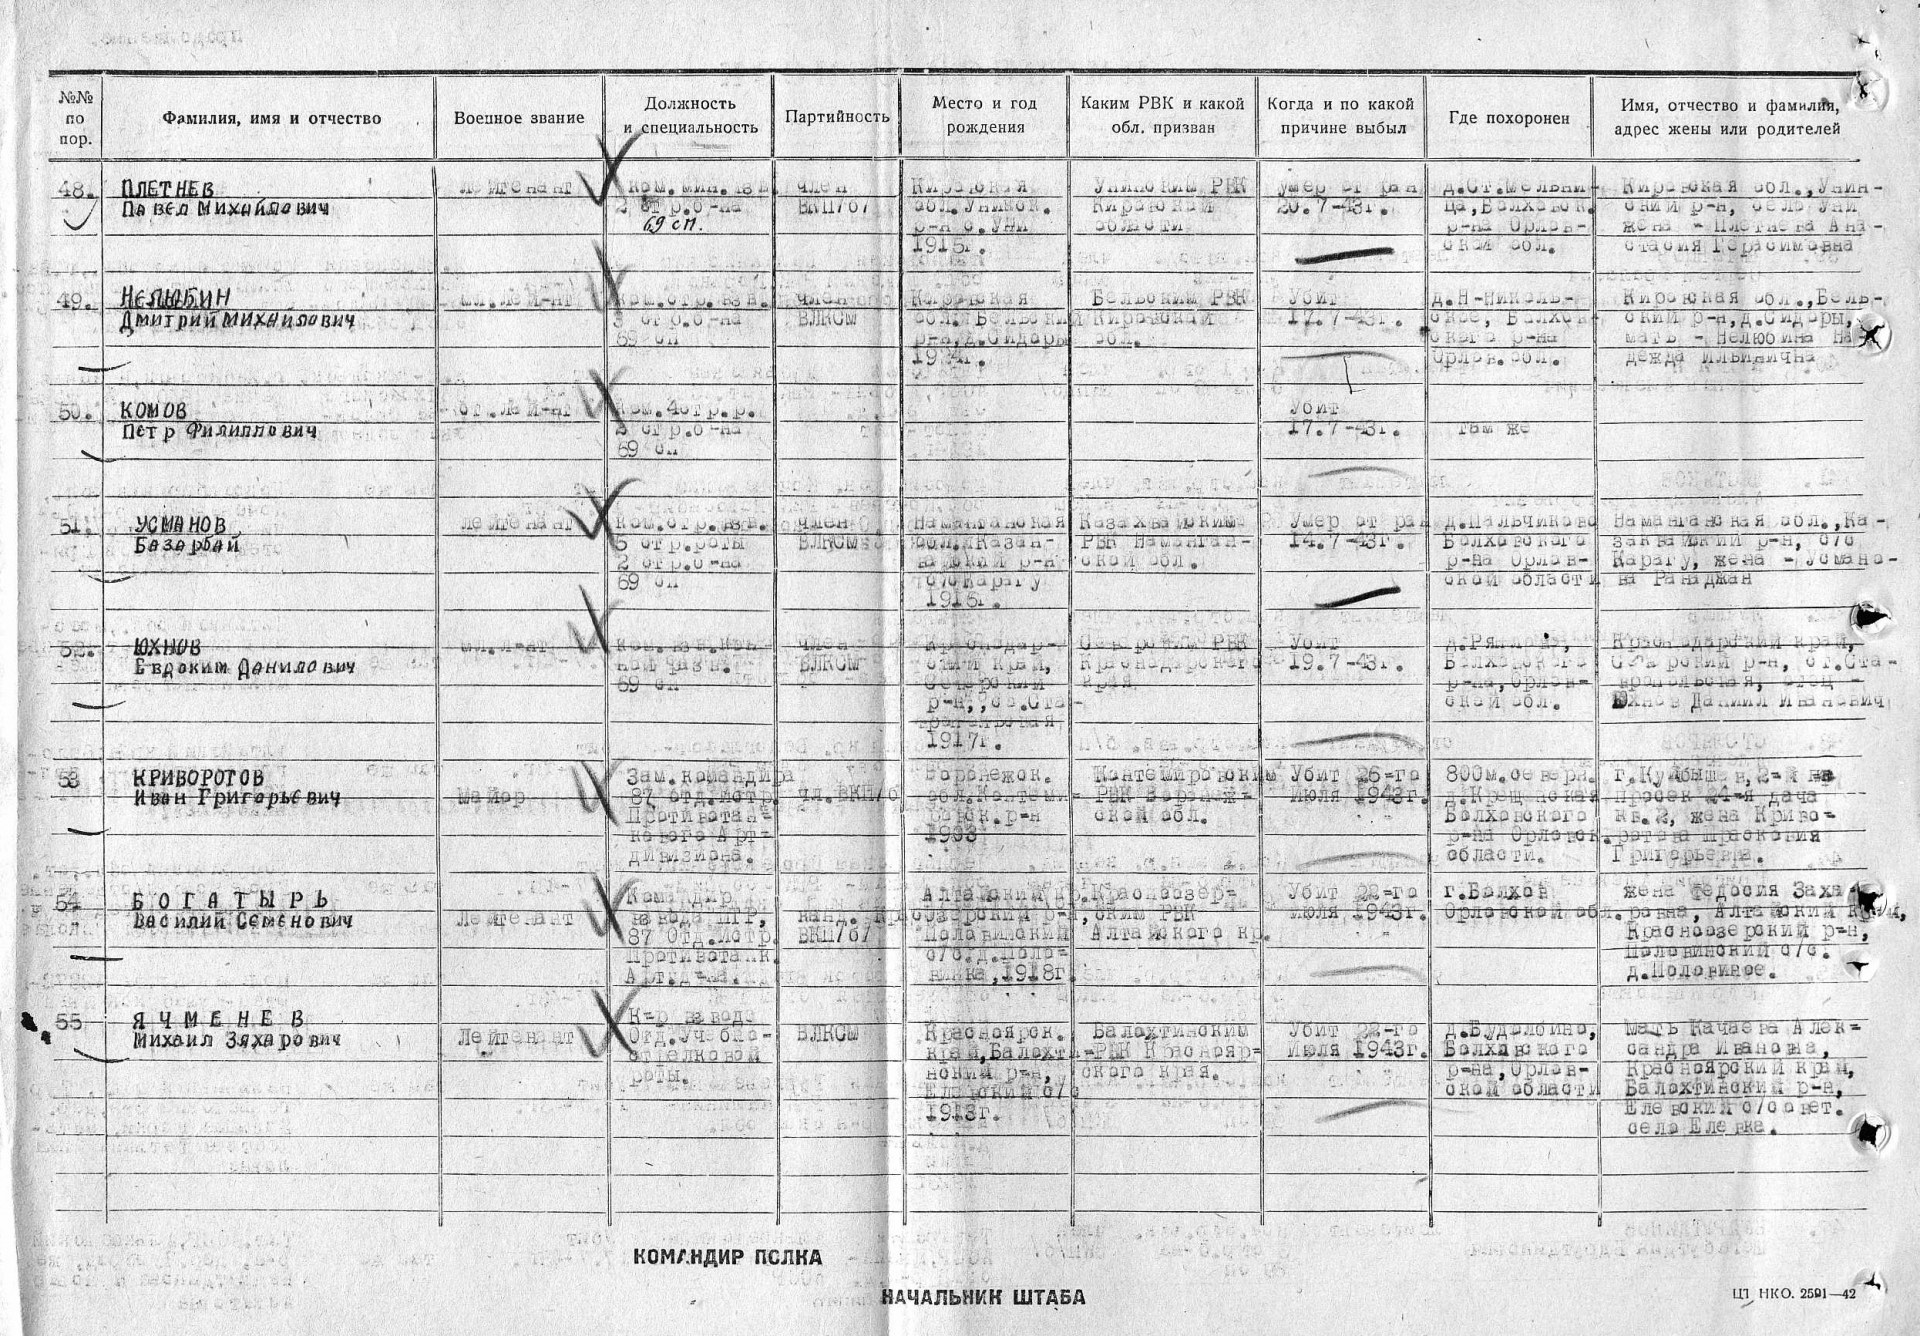 №№ по пор.
Фамилия, имя и отчество
Военное звание
Должность и специальность
Партийность
Место и год рождения
Каким РВК и какой обл. призван
Когда и по какой причине выбыл
Где похоронен
Имя, отчество и фамилия, адрес жены или родителей
48.
ПЛЕТНЕВ
Павел Михайлович
лейтенант
ком. мин.
2 стр.б-на
69 сп.
член
ВКП/б/
Кировская
обл. Унинск.
р-н с. Уни
1915г.
Унинским РВК
Кировской
области
Умер от ран
20.7-43г.
д.Ст.Мельни-
ца, Болховск.
р-на Орлов-
ской обл.
Кировская обл., Унин-
ский р-н, село Уни
жена - Плетнева Ана-
стасия Герасимовна
49.
НЕЛЮБИН
Дмитрий Михайлович
мл.лей-нт
ком.стр.взв.
3 стр.б-на
69 сп
член
ВЛКСМ
Кировская
обл. Бельский
р-н, д.Сидоры
1924г.
Бельским РВК
Кировской
обл.
Убит
17.7-43г.
д.Н-Николь-
ское, Болхов-
ского р-на
Орлов.обл.
Кировская обл., Бель-
ский р-н, д.Сидоры,
мать - Нелюбина На-
дежда Ильинична
50.
КОМОВ
Петр Филиппович
ст.лей-нт
ком.4стр.р.
2 стр.б-на
69 сп
Убит
17.7-43г.
там же
51.
УСМАНОВ
Базарбай
лейтенант
ком.стр.взв.
5 стр.роты
2 стр.б-на
69 сп
член
ВЛКСМ
Наманганская
обл. Казан-
р-н
с/с Карагу
1916г.
РВК Наманган-
ской обл.
Умер от ран
14.7-43г.
д.Пальчиково
Болховского
р-на Орлов-
ской области
Наманганская обл., Ка-
р-н, с/с
Карагу, жена - Усмано-
ва
52.
ЮХНОВ
Евдоким Данилович
мл.л-нт
69 сп
член
ВЛКСМ
Краснодар-
ский край,
р-н, ст.Ста-
1917г.
РВК
Краснодарского
края
Убит
19.7-43г.
Болховского
р-на, Орлов-
ской обл.
Краснодарский край,
р-н, ст.Ста-
отец -
Юхнов Даниил Иванович
53
КРИВОРОТОВ
Иван Григорьевич
Майор
Зам.командира
87 отд.Истр.
Противотан-
кового Арт-
дивизиона.
чл.ВКП/б
Воронежск.
обл.Контеми-
ровск.р-н
1903
Контемировским
РВК Воронеж-
ской обл.
Убит 26-го
Июля 1943г.
800м.северн.
д.Крещенская
Болховского
р-на Орловск.
области.
г.Куйбышев, 2-й
просек 24-я дача
кв.2, жена Криво-
ротова Прасковия
Григорьевна.
54
БОГАТЫРЬ
Василий Семенович
Лейтенант
Командир
взвода ПТР,
87 Отд.Истр.
Противотанк.
Арт.д-на.
канд.
ВКП/б/
Алтайский кр.
Краснозерский р-н,
Половинский
с/с.д.Поло-
винка, 1918г.
Красноозер-
ским РВК
Алтайского кр.
Убит 22-го
Июля 1943г.
г.Болхов
Орловской обл.
жена Федосия Заха-
ровна, Алтайский край,
Красноозерский р-н,
Половинский с/с.
д.Половиное.
55
ЯЧМЕНЕВ
Михаил Захарович
Лейтенант
К-р взвода
Отд.Учебно-
стрелковой
роты.
ВЛКСМ
Красноярск.
край, Балохти-
нский р-н,
Елевский с/с
1913г.
Балохтинским
РВК Краснояр-
ского края.
Убит 22-го
Июля 1943г.
д.Будолбино,
Болховского
р-на, Орлов-
ской области
мать Качаева Алек-
сандра Ивановна,
Красноярский край,
Балохтинский р-н,
Елевский с/совет.
село Елевка.
КОМАНДИР ПОЛКА
НАЧАЛЬНИК ШТАБА
ЦТ НКО. 2591—42